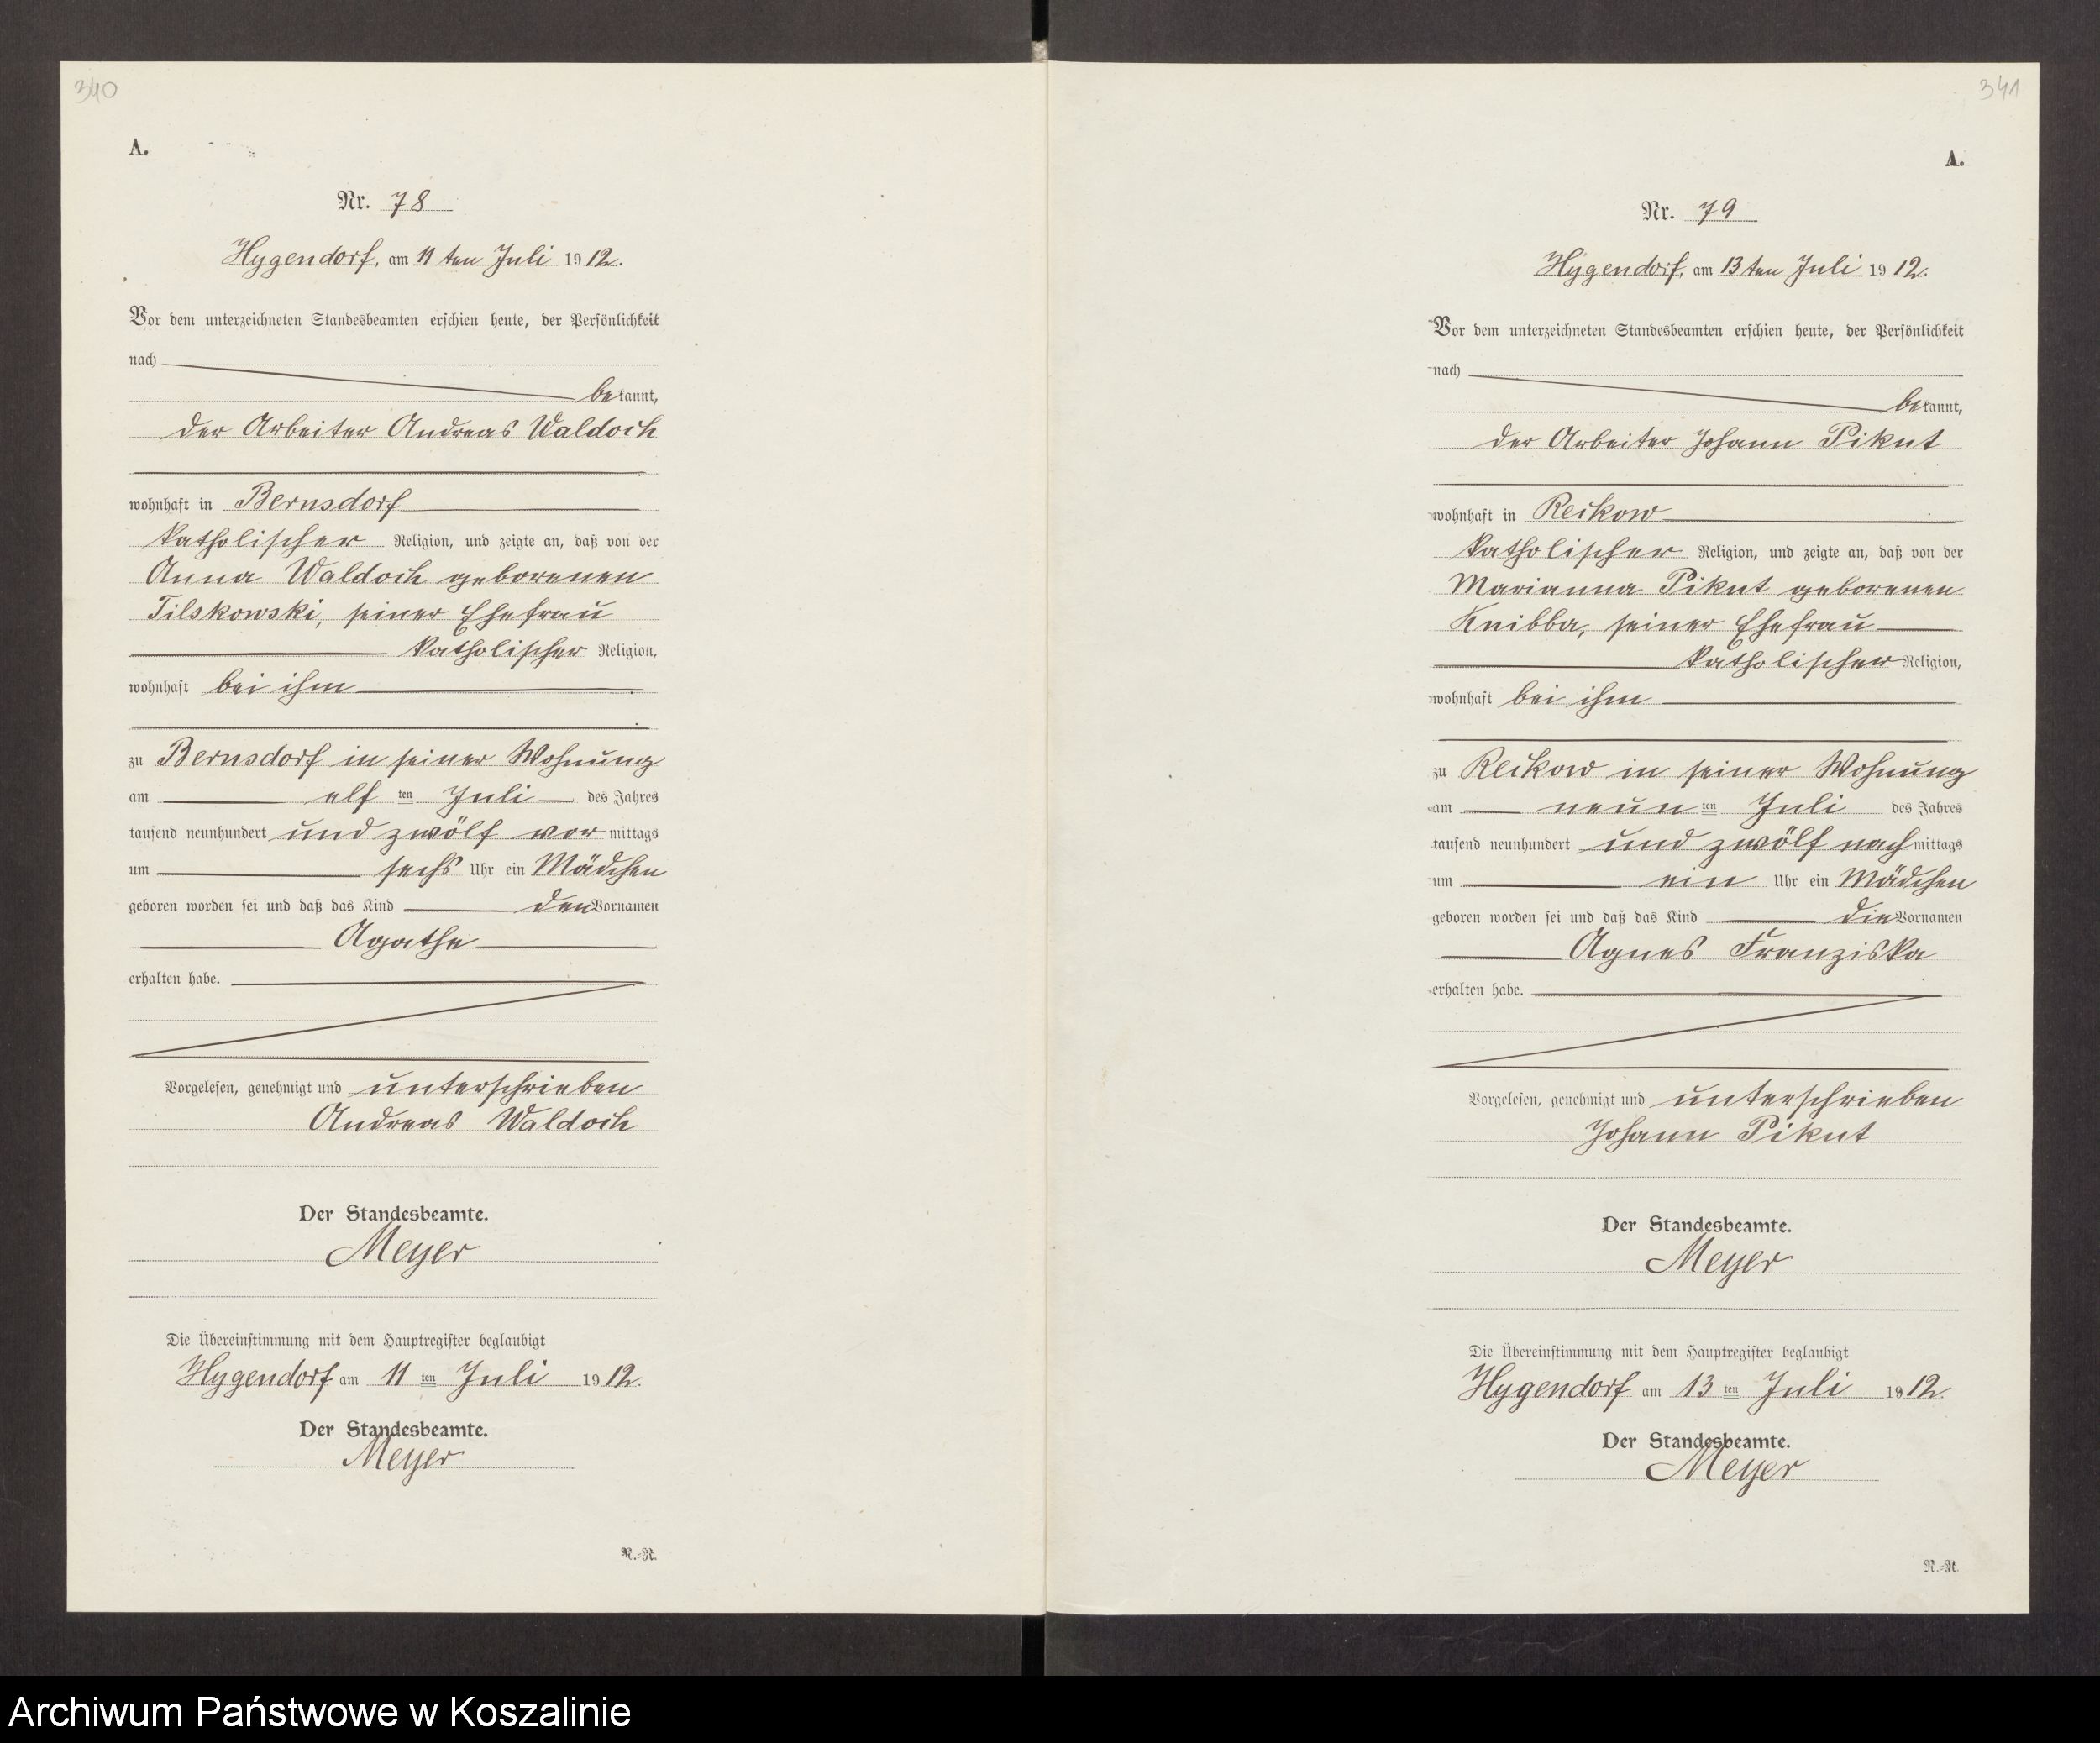 340
A.
Nr. 78
Hygendorf, am 11ten Juli 1912.
Vor dem unterzeichneten Standesbeamten erschien heute, der Persönlichkeit
nach
bekannt,
der Arbeiter Andreas Waldoch
wohnhaft in Bernsdorf
katholischer Religion, und zeigte an, daß von der
Anna Waldoch geborenen
Tilskowski, seiner Ehefrau
katholischer Religion,
wohnhaft bei ihm
zu Bernsdorf in seiner Wohnung
am elf ten Juli des Jahres
tausend neunhundert und zwölf vor mittags
um sechs Uhr ein Mädchen
geboren worden sei und daß das Kind den Vornamen
Agathe
erhalten habe.
Vorgelesen, genehmigt und unterschrieben
Andreas Waldoch
Der Standesbeamte.
Meyer
Die Übereinstimmung mit dem Hauptregister beglaubigt
Hygendorf am 11 ten Juli 1912.
Der Standesbeamte.
Meyer
N.-R.
341
A.
Nr. 79
Hygendorf, am 13ten Juli 1912.
Vor dem unterzeichneten Standesbeamten erschien heute, der Persönlichkeit
nach
bekannt,
der Arbeiter Johann Pikut
wohnhaft in Reikow
katholischer Religion, und zeigte an, daß von der
Marianna Pikut geborenen
Knibba, seiner Ehefrau
katholischer Religion,
wohnhaft bei ihm
zu Reikow in seiner Wohnung
am neun ten Juli des Jahres
tausend neunhundert und zwölf nach mittags
um ein Uhr ein Mädchen
geboren worden sei und daß das Kind die Vornamen
Agnes Franziska
erhalten habe.
Vorgelesen, genehmigt und unterschrieben
Johann Pikut
Der Standesbeamte.
Meyer
Die Übereinstimmung mit dem Hauptregister beglaubigt
Hygendorf am 13 ten Juli 1912
Der Standesbeamte.
Meyer
N.-R.
Archiwum Państwowe w Koszalinie